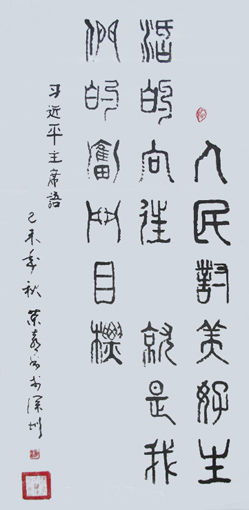 人民對美好生
活的向往就是我
們的奮鬥目標
习近平主席語
己未年秋 於深圳